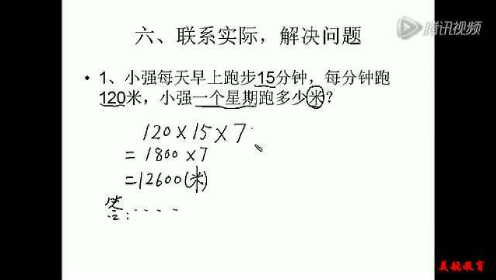 腾讯视频
六、联系实际，解决问题
• 1、小强每天早上跑步15分钟，每分钟跑
120米，小强一个星期跑多少米？
120×15×7
=1800×7
=12600(米)
答：....
美粒教育